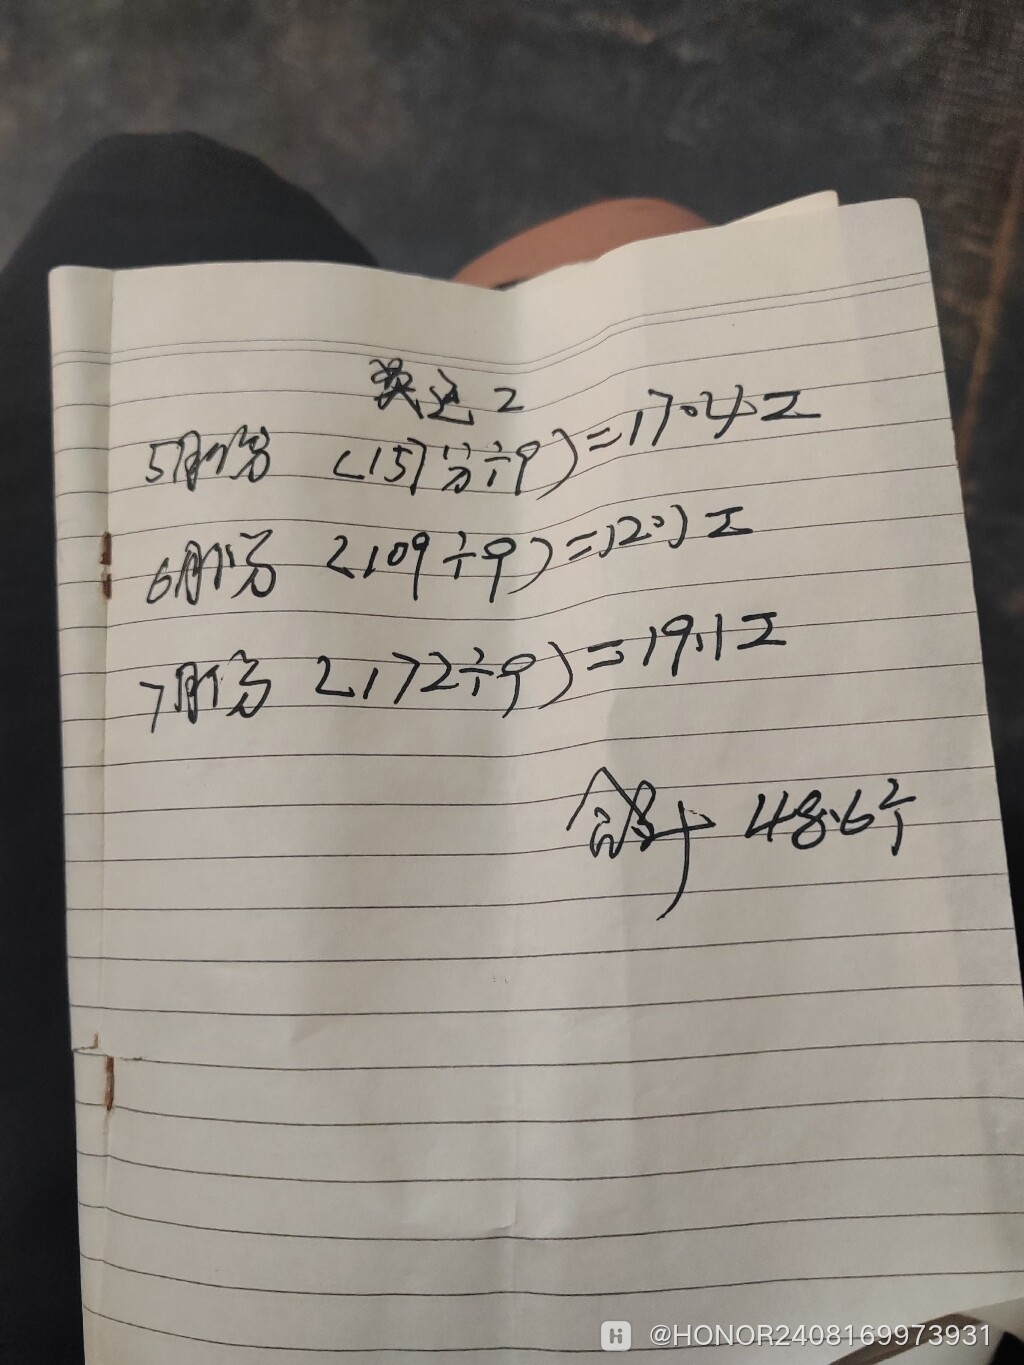 2
5月份 (157分÷9)=17.4工
6月份 (109÷9)=12.1工
7月份 (172÷9)=19.1工
合计 48.6个
@HONOR2408169973931